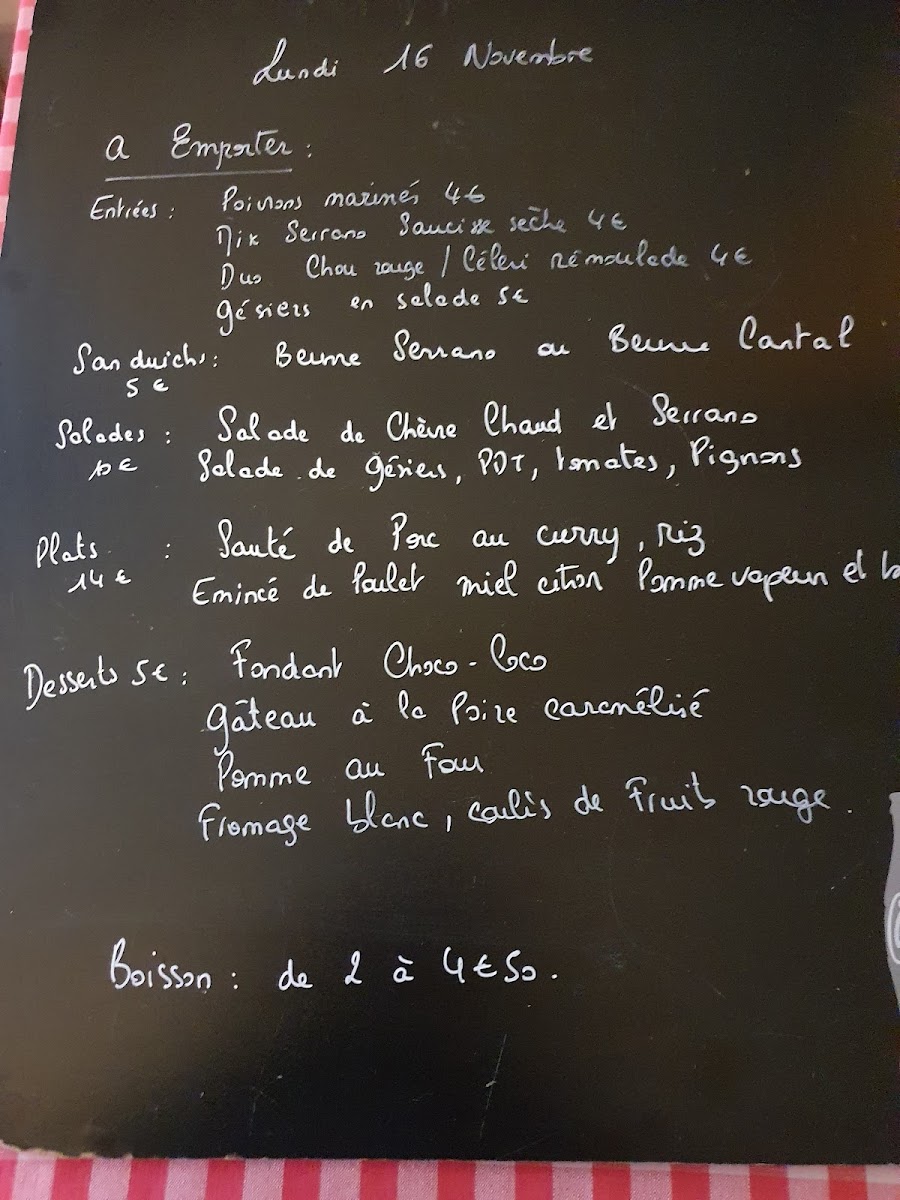 Lundi 16 Novembre
A Emporter :
Entrées : Poivrons marinés 4€
Mix Serrano Saucisse sèche 4€
Duo Chou rouge / Céleri rémoulade 4€
gésiers en salade 5€
Sandwichs : Beurre Serrano ou Beurre Cantal
5€
Salades : Salade de Chèvre Chaud et Serrano
10€ Salade de gésiers, PDT, tomates, Pignons
Plats : Sauté de Porc au curry, Riz
14€ Emincé de Poulet miel citron Pomme vapeur et
Desserts 5€ : Fondant Choco-Coco
gâteau à la Poire caramélisé
Pomme au Four
Fromage blanc, coulis de Fruits rouge.
Boisson : de 2 à 4€50.